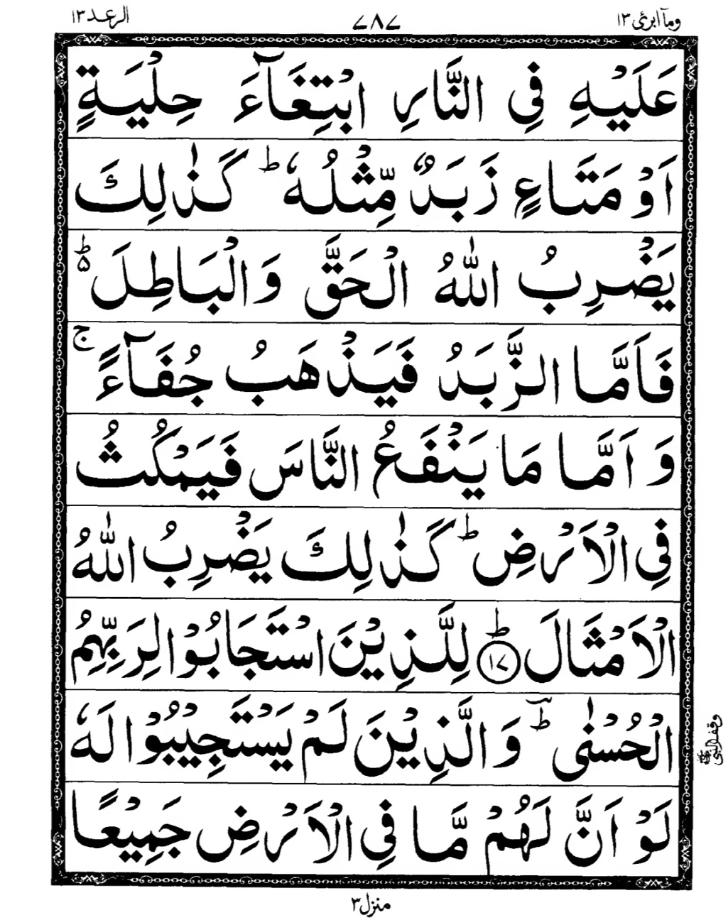 وما ابرئ ١٣
٧٨٧
الرعد ١٣
عَلَيْهِ فِي النَّارِ ابْتِغَآءَ حِلْيَةٍ
اَوْ مَتَاعٍ زَبَدٌ مِّثْلُهٗ ؕ كَذٰلِكَ
يَضْرِبُ اللّٰهُ الْحَقَّ وَالْبَاطِلَ ۬ؕ
فَاَمَّا الزَّبَدُ فَيَذْهَبُ جُفَآءً ۚ
وَاَمَّا مَا يَنْفَعُ النَّاسَ فَيَمْكُثُ
فِي الْاَرْضِ ؕ كَذٰلِكَ يَضْرِبُ اللّٰهُ
الْاَمْثَالَ ؕ ﴿١٧﴾ لِلَّذِيْنَ اسْتَجَابُوْا لِرَبِّهِمُ
الْحُسْنٰى ؕ وَالَّذِيْنَ لَمْ يَسْتَجِيْبُوْا لَهٗ
لَوْ اَنَّ لَهُمْ مَّا فِي الْاَرْضِ جَمِيْعًا
وقف النبي ﷺ
منزل ٣